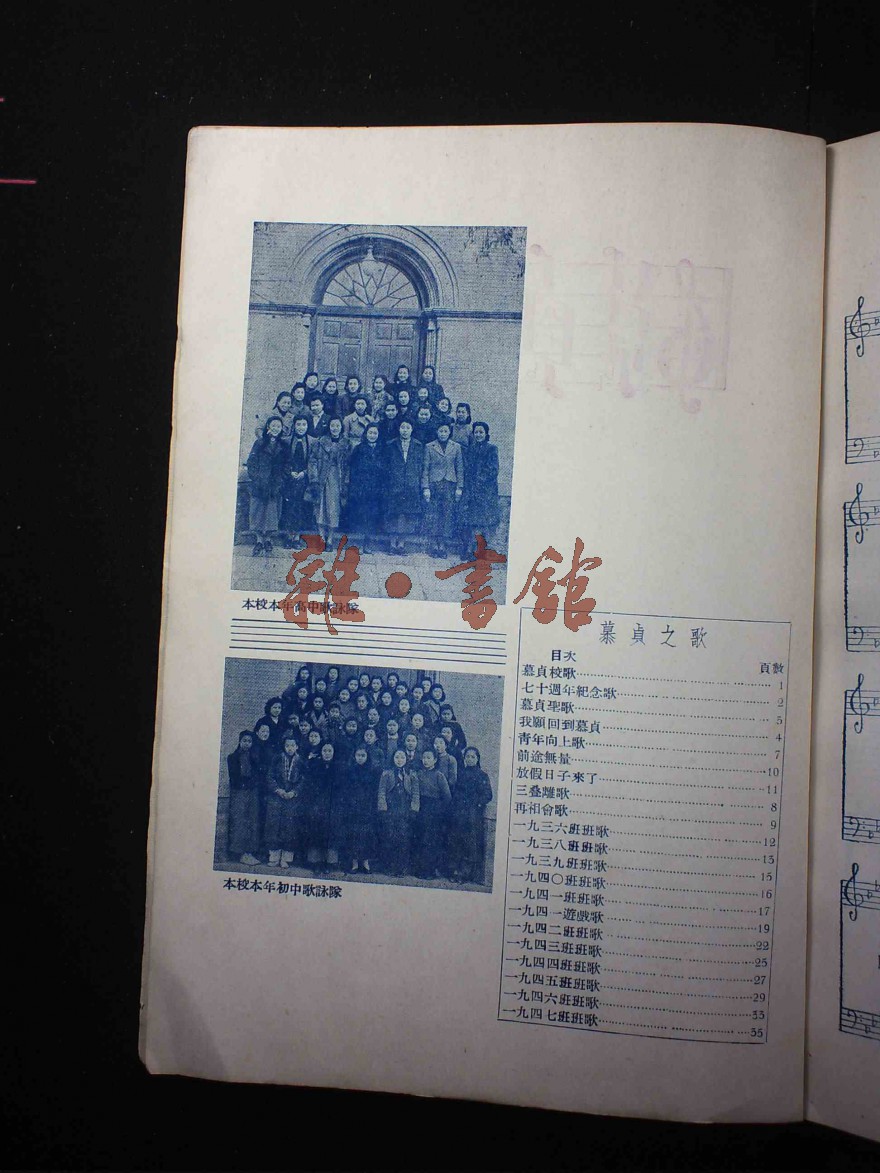 本校本年高中歌詠隊
本校本年初中歌詠隊
雜·書館
慕貞之歌
目次 頁數
慕貞校歌 1
七十週年紀念歌 2
慕貞聖歌 5
我願回到慕貞 4
青年向上歌 7
前途無量 10
放假日子來了 11
三叠離歌 8
再相會歌 9
一九三六班班歌 12
一九三八班班歌 13
一九三九班班歌 15
一九四〇班班歌 16
一九四一班班歌 17
一九四一遊戲歌 19
一九四二班班歌 22
一九四三班班歌 25
一九四四班班歌 27
一九四五班班歌 29
一九四六班班歌 33
一九四七班班歌 35